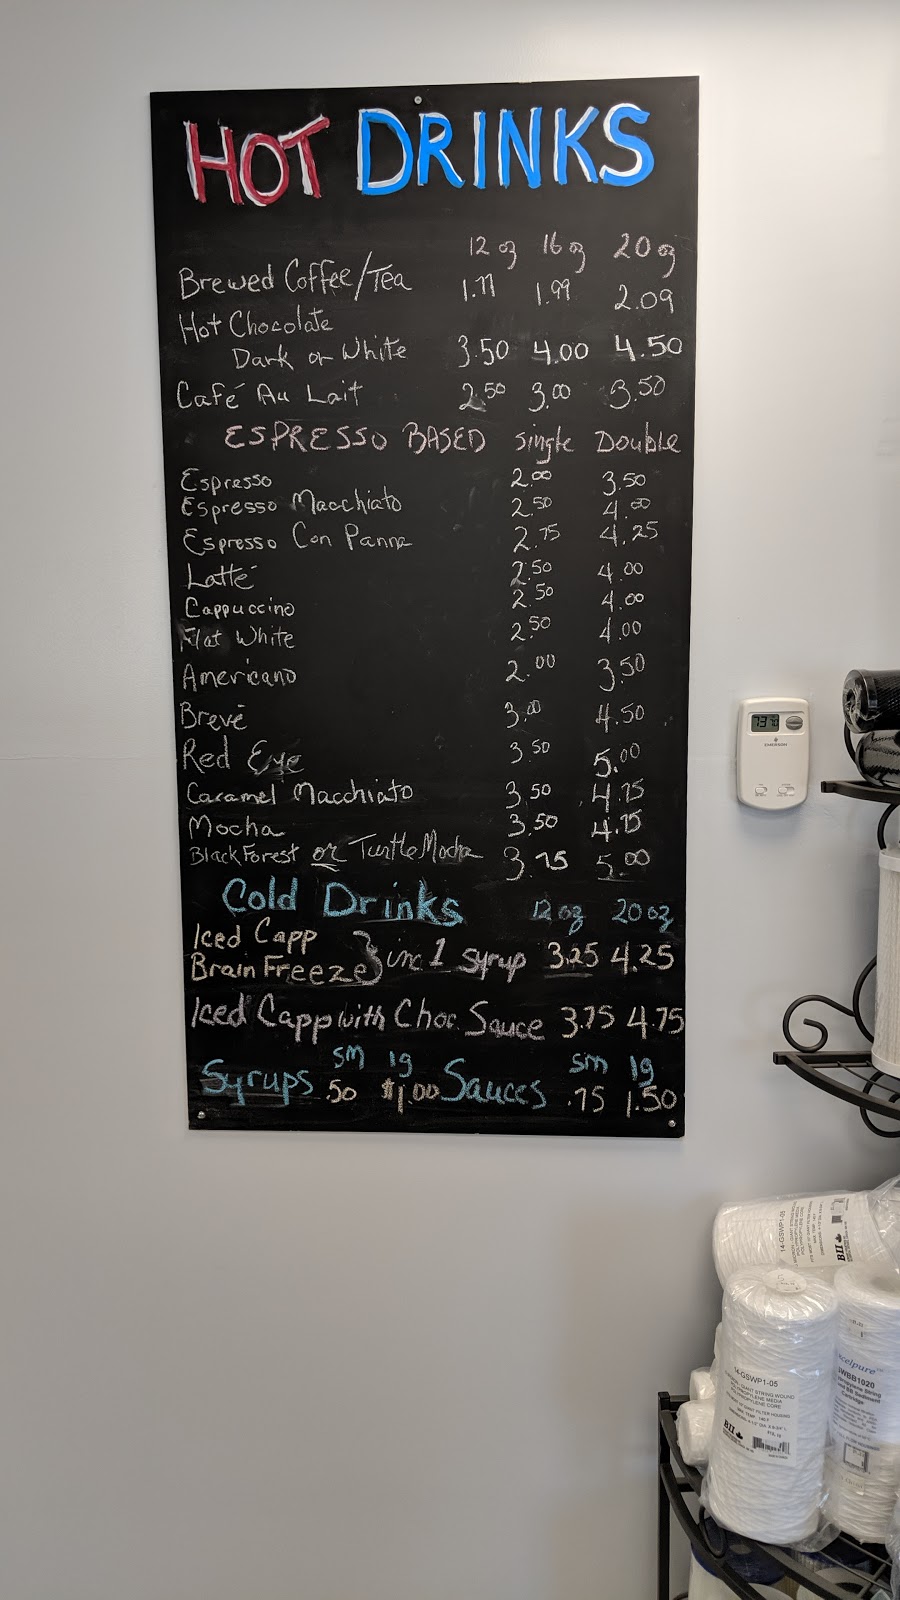 HOT DRINKS
12 oz 16 oz 20 oz
Brewed Coffee/Tea 1.77 1.99 2.09
Hot Chocolate
Dark or White 3.50 4.00 4.50
Café Au Lait 2.50 3.00 3.50
ESPRESSO BASED single Double
Espresso 2.00 3.50
Espresso Macchiato 2.50 4.00
Espresso Con Panna 2.75 4.25
Latté 2.50 4.00
Cappuccino 2.50 4.00
Flat White 2.50 4.00
Americano 2.00 3.50
Brevé 3.00 4.50
Red Eye 3.50 5.00
Caramel Macchiato 3.50 4.75
Mocha 3.50 4.75
Black Forest or Turtle Mocha 3.75 5.00
Cold Drinks 12 oz 20 oz
Iced Capp
Brain Freeze } inc 1 syrup 3.25 4.25
Iced Capp with Choc Sauce 3.75 4.75
sm lg sm lg
Syrups .50 $1.00 Sauces .75 1.50
EMERSON
14-GSWP1-05
BII
14-GSWP1-05
POLYPROPYLENE MEDIA
POLYPROPYLENE CORE
BII
WBB1020
Cartridge